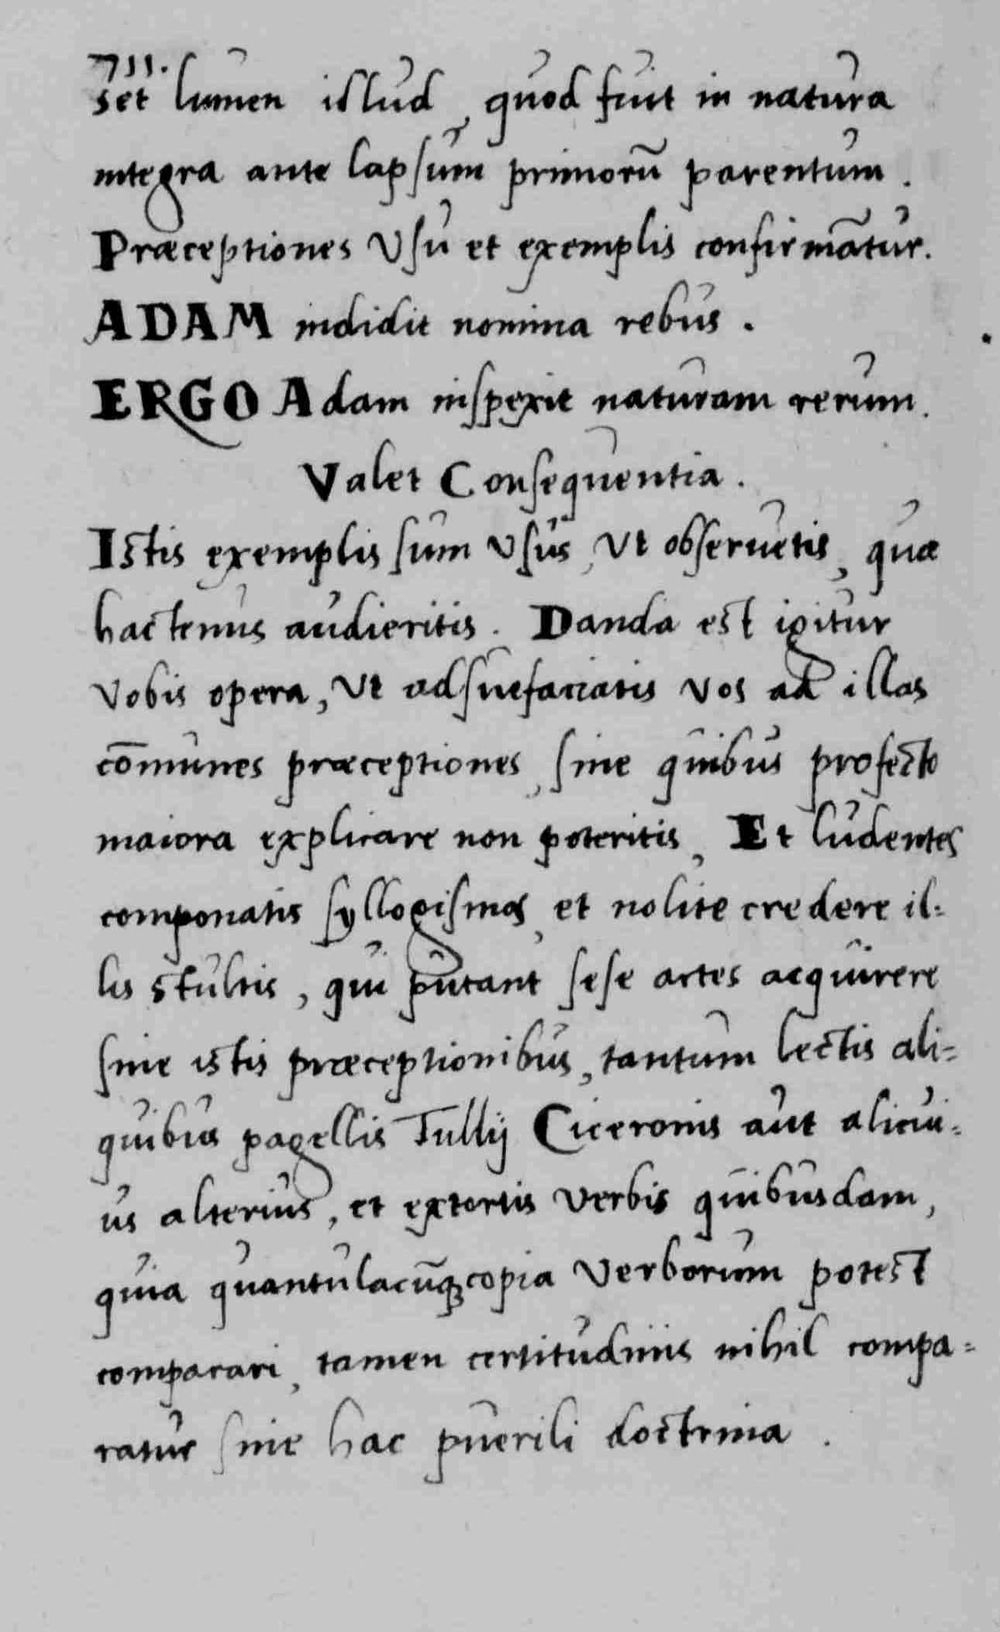 711.
set lumen illud, quod fuit in natura
integra ante lapsum primorū parentum.
Præceptiones Usu et exemplis confirmātur.
ADAM indidit nomina rebus.
ERGO Adam inspexit naturam rerum.
Valet Consequentia.
Istis exemplis sum Usus, Ut obseruetis, quæ
hactenus audieritis. Danda est igitur
Vobis opera, Ut adsuefaciatis Vos ad illas
cōmunes præceptiones, sine quibus profecto
maiora explicare non poteritis, Et ludentes
componatis syllogismos, et nolite credere il=
lis stultis, qui putant sese artes acquirere
sine istis præceptionibus, tantum lectis ali=
quibus pagellis Tullij Ciceronis aut alicui=
us alterius, et extortis Verbis quibusdam,
quia quantulacūqꝫ copia Verborum potest
comparari, tamen certitudinis nihil compa=
ratur sine hac puerili doctrina.